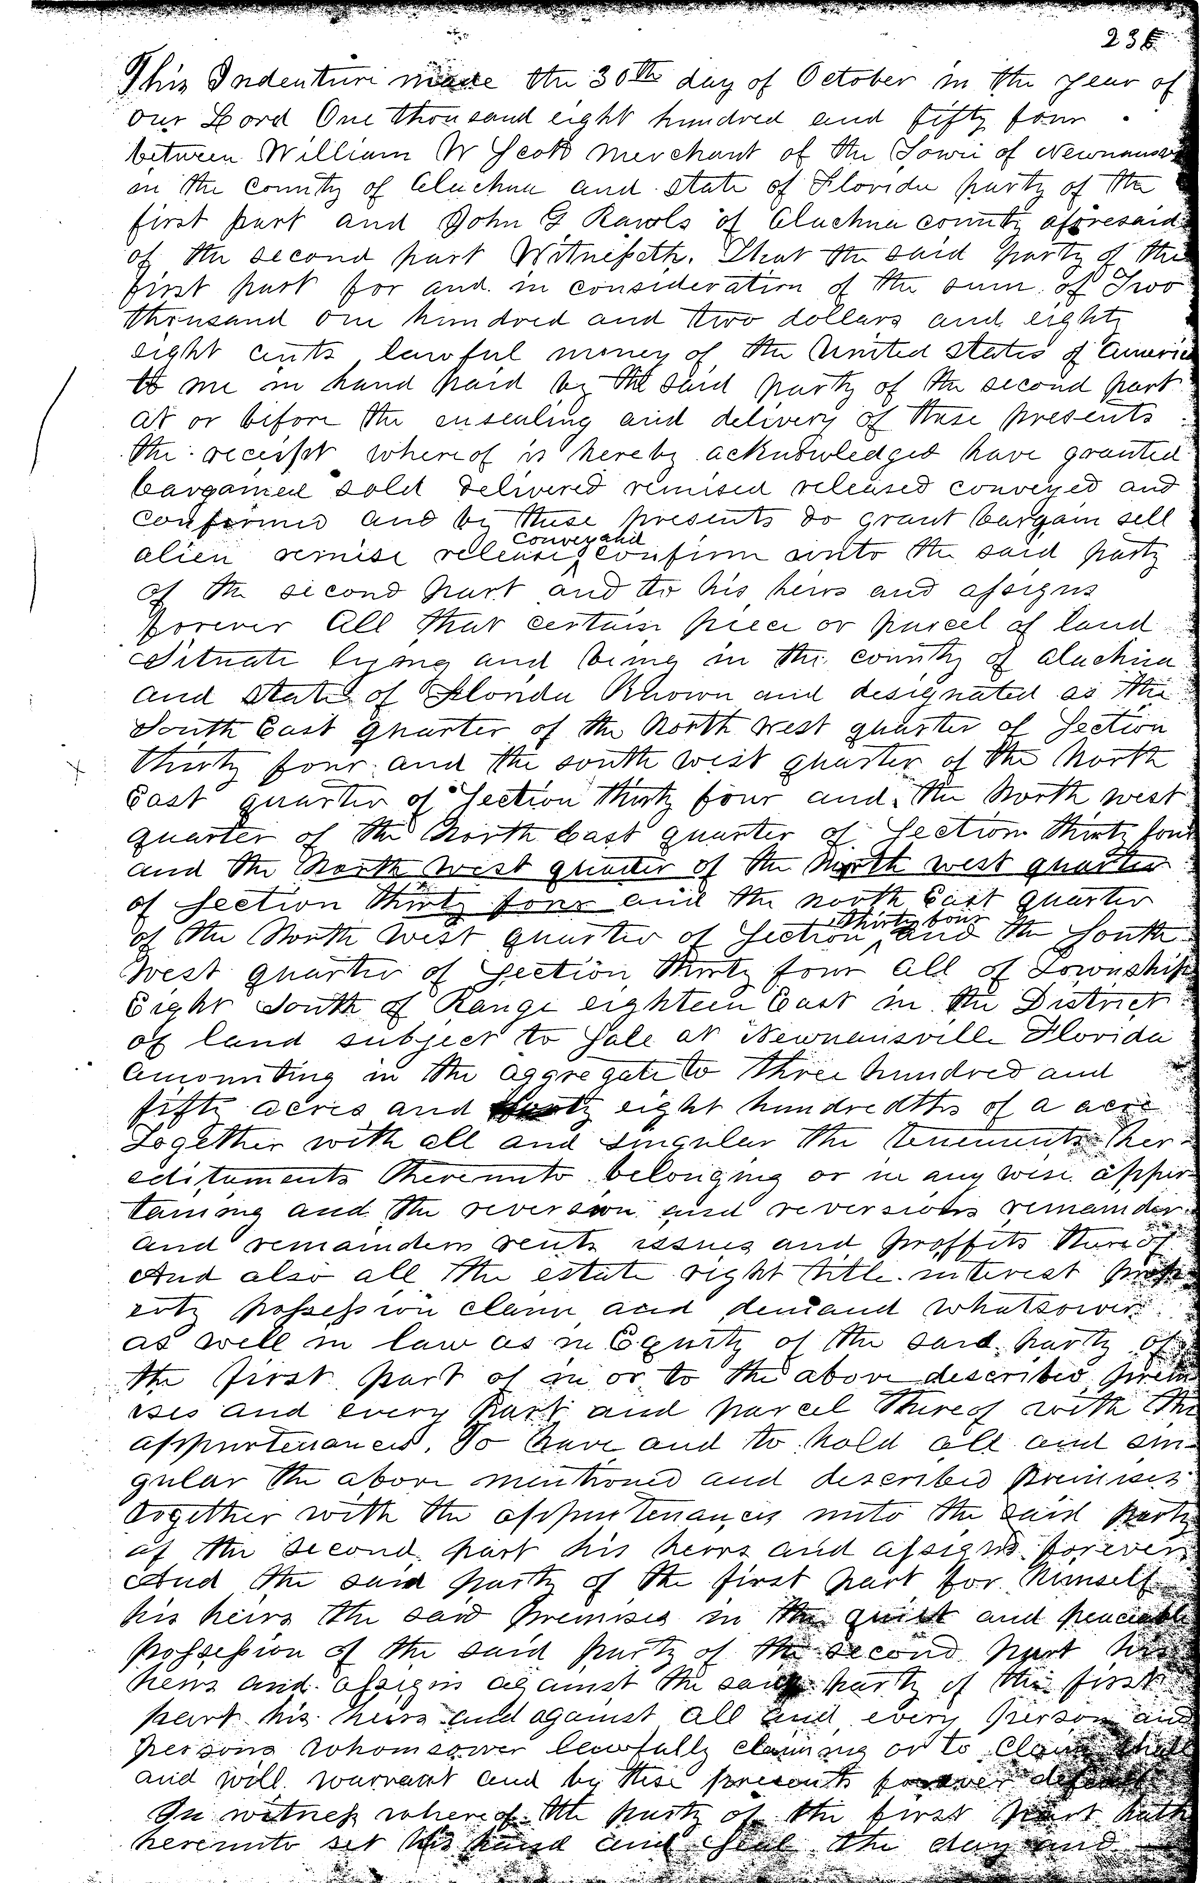 235
This Indenture made the 30th day of October in the year of
our Lord One thousand eight hundred and fifty four
between William W Scott Merchant of the Town of Newnansv
in the county of Alachua and state of Florida party of the
first part and John G Rawls of Alachua county aforesaid
of the second part Witnesseth. That the said party of the
first part for and in consideration of the sum of Two
thousand one hundred and two dollars and eighty
eight cents lawful money of the United States of America
to me in hand paid by the said party of the second part
at or before the ensealing and delivery of these presents
the receipt whereof is hereby acknowledged have granted
bargained sold delivered remised released conveyed and
confirmed and by these presents do grant bargain sell
alien remise release convey and confirm unto the said party
of the second part and to his heirs and assigns
forever All that certain piece or parcel of land
Situate lying and being in the county of Alachua
and State of Florida Known and designated as the
South East quarter of the North West quarter of Section
thirty four and the south west quarter of the North
East quarter of Section thirty four and the North west
quarter of the North East quarter of Section thirty four
and the North West quarter of the North west quarter
of Section thirty four and the north East quarter
of the North West quarter of Section thirty four and the South
West quarter of Section thirty four All of Township
Eight South of Range eighteen East in the District
of land subject to Sale at Newnansville Florida
Amounting in the aggregate to three hundred and
fifty acres and eight hundredths of a acre
Together with all and singular the tenements her-
editaments thereunto belonging or in any wise apper-
taining and the reversion and reversions remainder
and remainders rents issues and proffits thereof
And also all the estate right title interest prop-
erty possession claim and demand whatsower
as well in law as in Equity of the said party of
the first part of in or to the above described prem
ises and every part and parcel thereof with the
appurtenances. To have and to hold all and sin-
gular the above mentioned and described premises
together with the appurtenances unto the said party
of the second part his heirs and assigns forever
And the said party of the first part for himself
his heirs the said premises in the quiet and peaceable
possession of the said party of the second part his
heirs and assigns against the said party of the first
part his heirs and against all and every person and
persons whomsower lawfully claiming or to claim shall
and will warrant and by these presents forever defend
In witness whereof the party of the first part hath
hereunto set his hand and Seal the day and